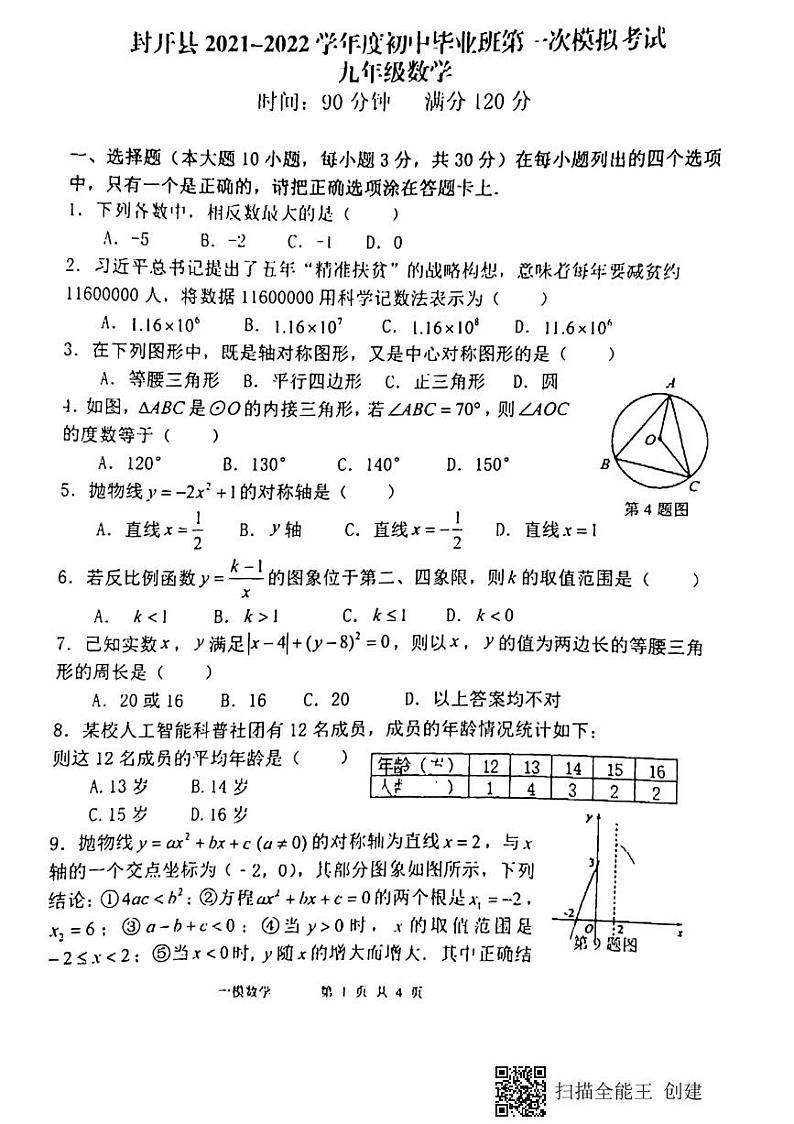 封开县 2021-2022 学年度初中毕业班第一次模拟考试
九年级数学
时间：90 分钟 满分 120 分
一、选择题（本大题 10 小题，每小题 3 分，共 30 分）在每小题列出的四个选项
中，只有一个是正确的，请把正确选项涂在答题卡上.
1. 下列各数中，相反数最大的是（ ）
A. -5 B. -2 C. -1 D. 0
2. 习近平总书记提出了五年“精准扶贫”的战略构想，意味着每年要减贫约
11600000 人，将数据 11600000 用科学记数法表示为（ ）
A. 1.16×10⁶ B. 1.16×10⁷ C. 1.16×10⁸ D. 11.6×10⁶
3. 在下列图形中，既是轴对称图形，又是中心对称图形的是（ ）
A. 等腰三角形 B. 平行四边形 C. 正三角形 D. 圆
4. 如图，ΔABC 是⊙O 的内接三角形，若∠ABC = 70°，则∠AOC
的度数等于（ ）
A. 120° B. 130° C. 140° D. 150°
A
O
B
C
第 4 题图
5. 抛物线 y = -2x² + 1 的对称轴是（ ）
A. 直线 x = 1/2 B. y 轴 C. 直线 x = -1/2 D. 直线 x = 1
6. 若反比例函数 y = (k-1)/x 的图象位于第二、四象限，则 k 的取值范围是（ ）
A. k < 1 B. k > 1 C. k ≤ 1 D. k < 0
7. 已知实数 x，y 满足|x-4|+(y-8)² = 0，则以 x，y 的值为两边长的等腰三角
形的周长是（ ）
A. 20 或 16 B. 16 C. 20 D. 以上答案均不对
8. 某校人工智能科普社团有 12 名成员，成员的年龄情况统计如下：
则这 12 名成员的平均年龄是（ ）
年龄（ ） 12 13 14 15 16
人 ） 1 4 3 2 2
A. 13 岁 B. 14 岁
C. 15 岁 D. 16 岁
9. 抛物线 y = ax² + bx + c (a ≠ 0) 的对称轴为直线 x = 2，与 x
轴的一个交点坐标为（-2，0），其部分图象如图所示，下列
结论：①4ac < b²；②方程 ax² + bx + c = 0 的两个根是 x₁ = -2，
x₂ = 6；③ a - b + c < 0；④当 y > 0 时，x 的取值范围是
-2 ≤ x < 2；⑤当 x < 0 时，y 随 x 的增大而增大. 其中正确结
y
3
-2 O 2 x
第 9 题图
一模数学 第 1 页 共 4 页
扫描全能王 创建